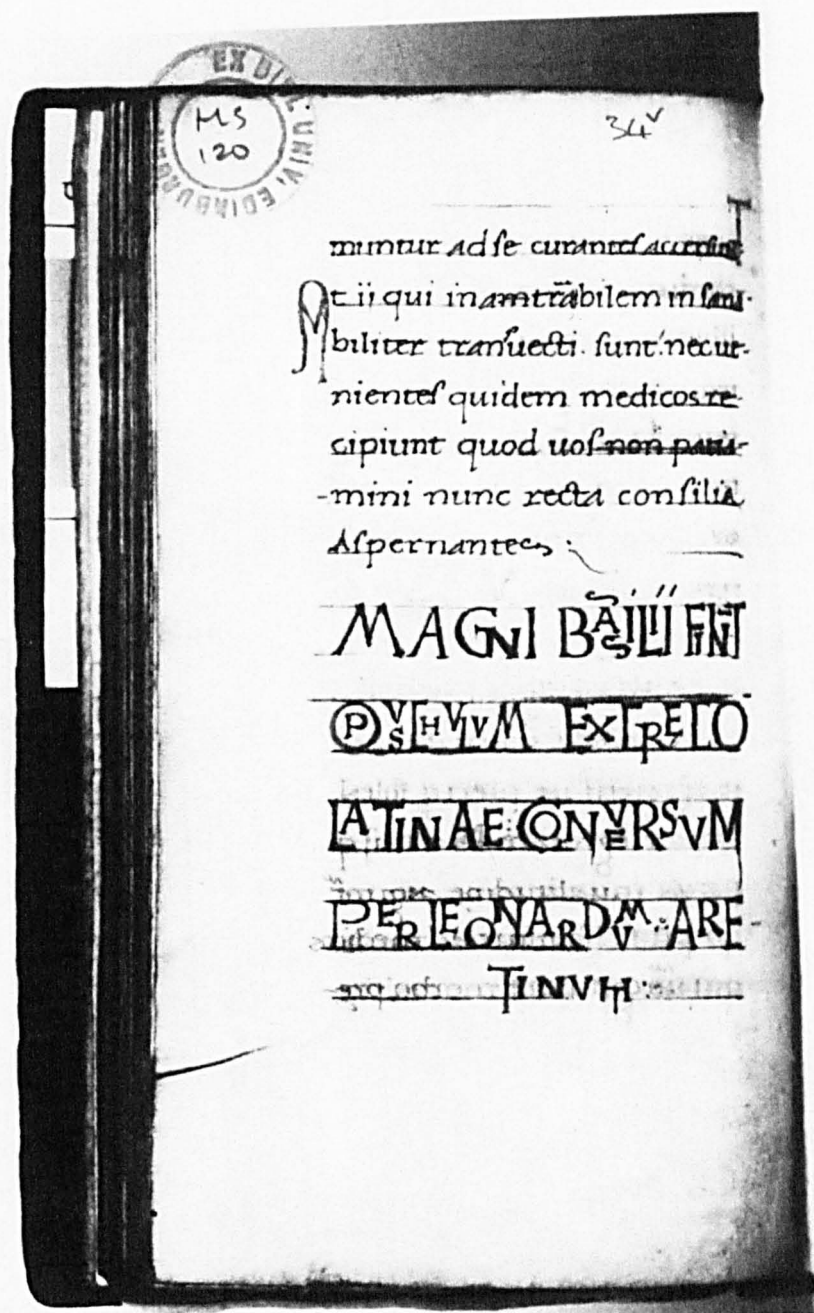 EX BIBL. UNIV. EDINBURGEN
MS
120
34v
muntur ad se curantes accersiunt
At ii qui in amtrãbilem insani-
biliter transuecti. sunt: nec ue-
nientes quidem medicos re-
cipiunt quod uos non patia-
-mini nunc recta consilia
Aspernantes:
MAGNI BASILII FINIT
OPVSCHVLVM EX GRECO
LATINAE CONVERSVM
PER LEONARDVM: ARE-
TINVM: